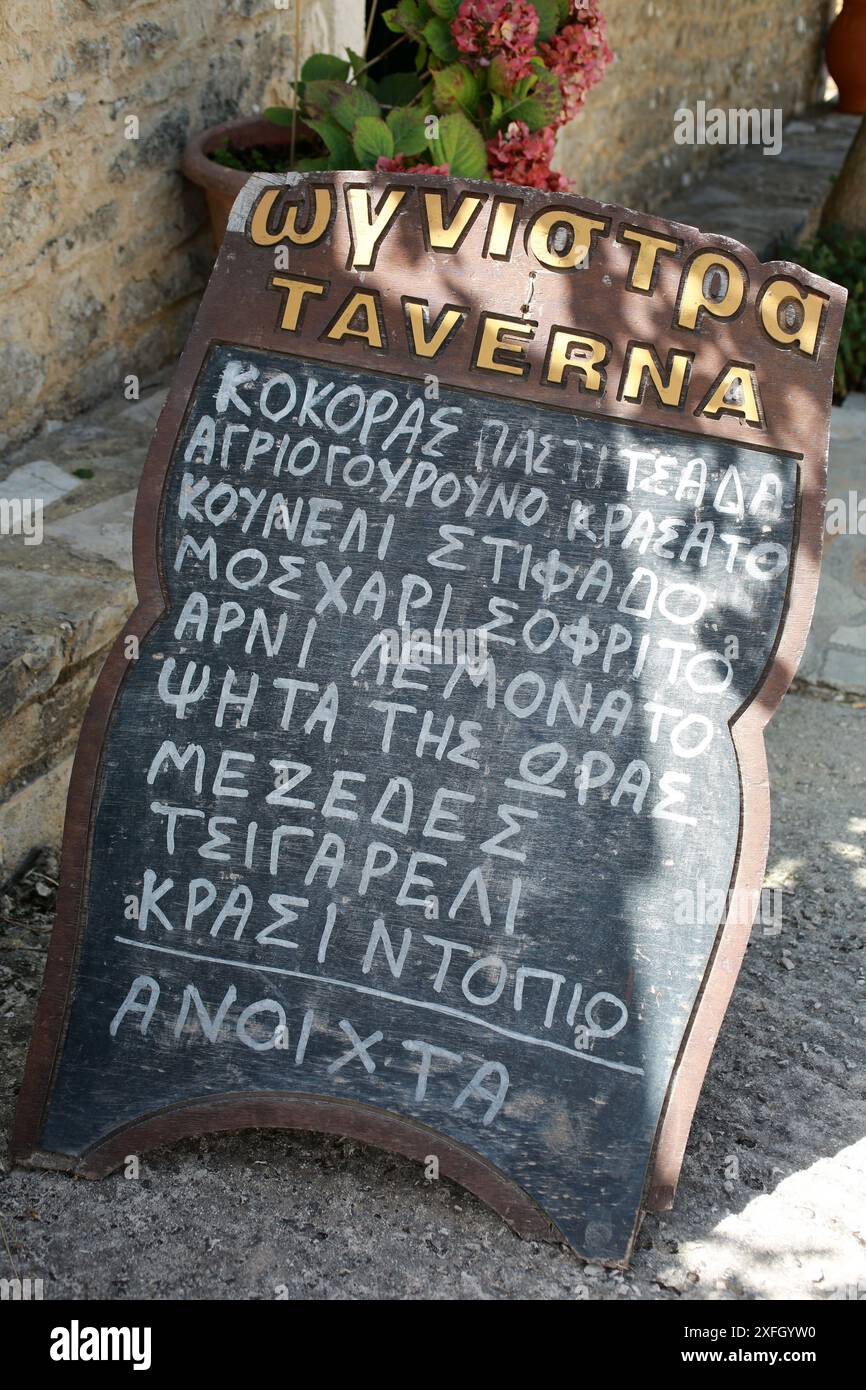 ωγνιστρα
TAVERNA
ΚΟΚΟΡΑΣ ΠΑΣΤΙΤΣΑΔΑ
ΑΓΡΙΟΓΟΥΡΟΥΝΟ ΚΡΑΣΑΤΟ
ΚΟΥΝΕΛΙ ΣΤΙΦΑΔΟ
ΜΟΣΧΑΡΙ ΣΟΦΡΙΤΟ
ΑΡΝΙ ΛΕΜΟΝΑΤΟ
ΨΗΤΑ ΤΗΣ ΩΡΑΣ
ΜΕΖΕΔΕΣ
ΤΣΙΓΑΡΕΛΙ
ΚΡΑΣΙ ΝΤΟΠΙΟ
ΑΝΟΙΧΤΑ
alamy
Image ID: 2XFGYW0
www.alamy.com